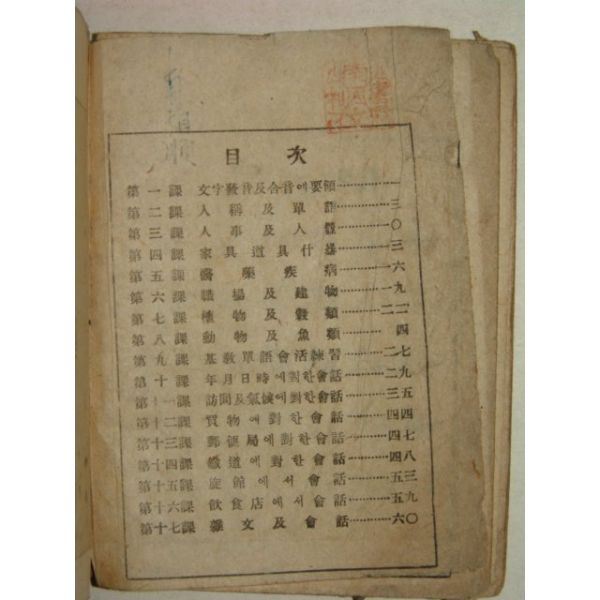 目次
第一課 文字發音及合音에要領 一
第二課 人稱及單語 三
第三課 人事及人體 〇
第四課 家具道具什 三
第五課 醫藥疾病 六
第六課 及建物 一九
第七課 植物及穀類 二二
第八課 動物及魚類 四
第九課 基敎單語會活練習 二七
第十課 年月日時에對한會話 二九
第十一課 訪問及氣候에對한會話 三五
第十二課 買物에對한會話 四四
第十三課 郵便局에對한會話 四七
第十四課 鐵道에對한會話 四八
第十五課 旅館에서會話 五三
第十六課 飮食店에서會話 五九
第十七課 雜文及會話 六〇